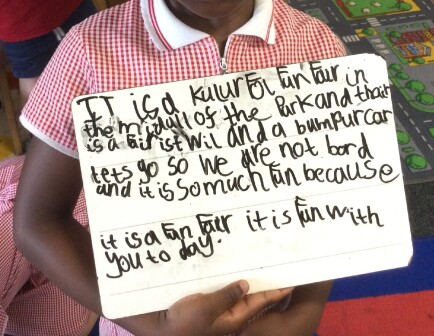 IT is a kulurful Fun Fair in
the midull of the Park and thair
is a Fair ist wil and a bumpur car
lets go so we are not bord
and it is so much fun because
it is a Fun Fair it is Fun with
you to day.